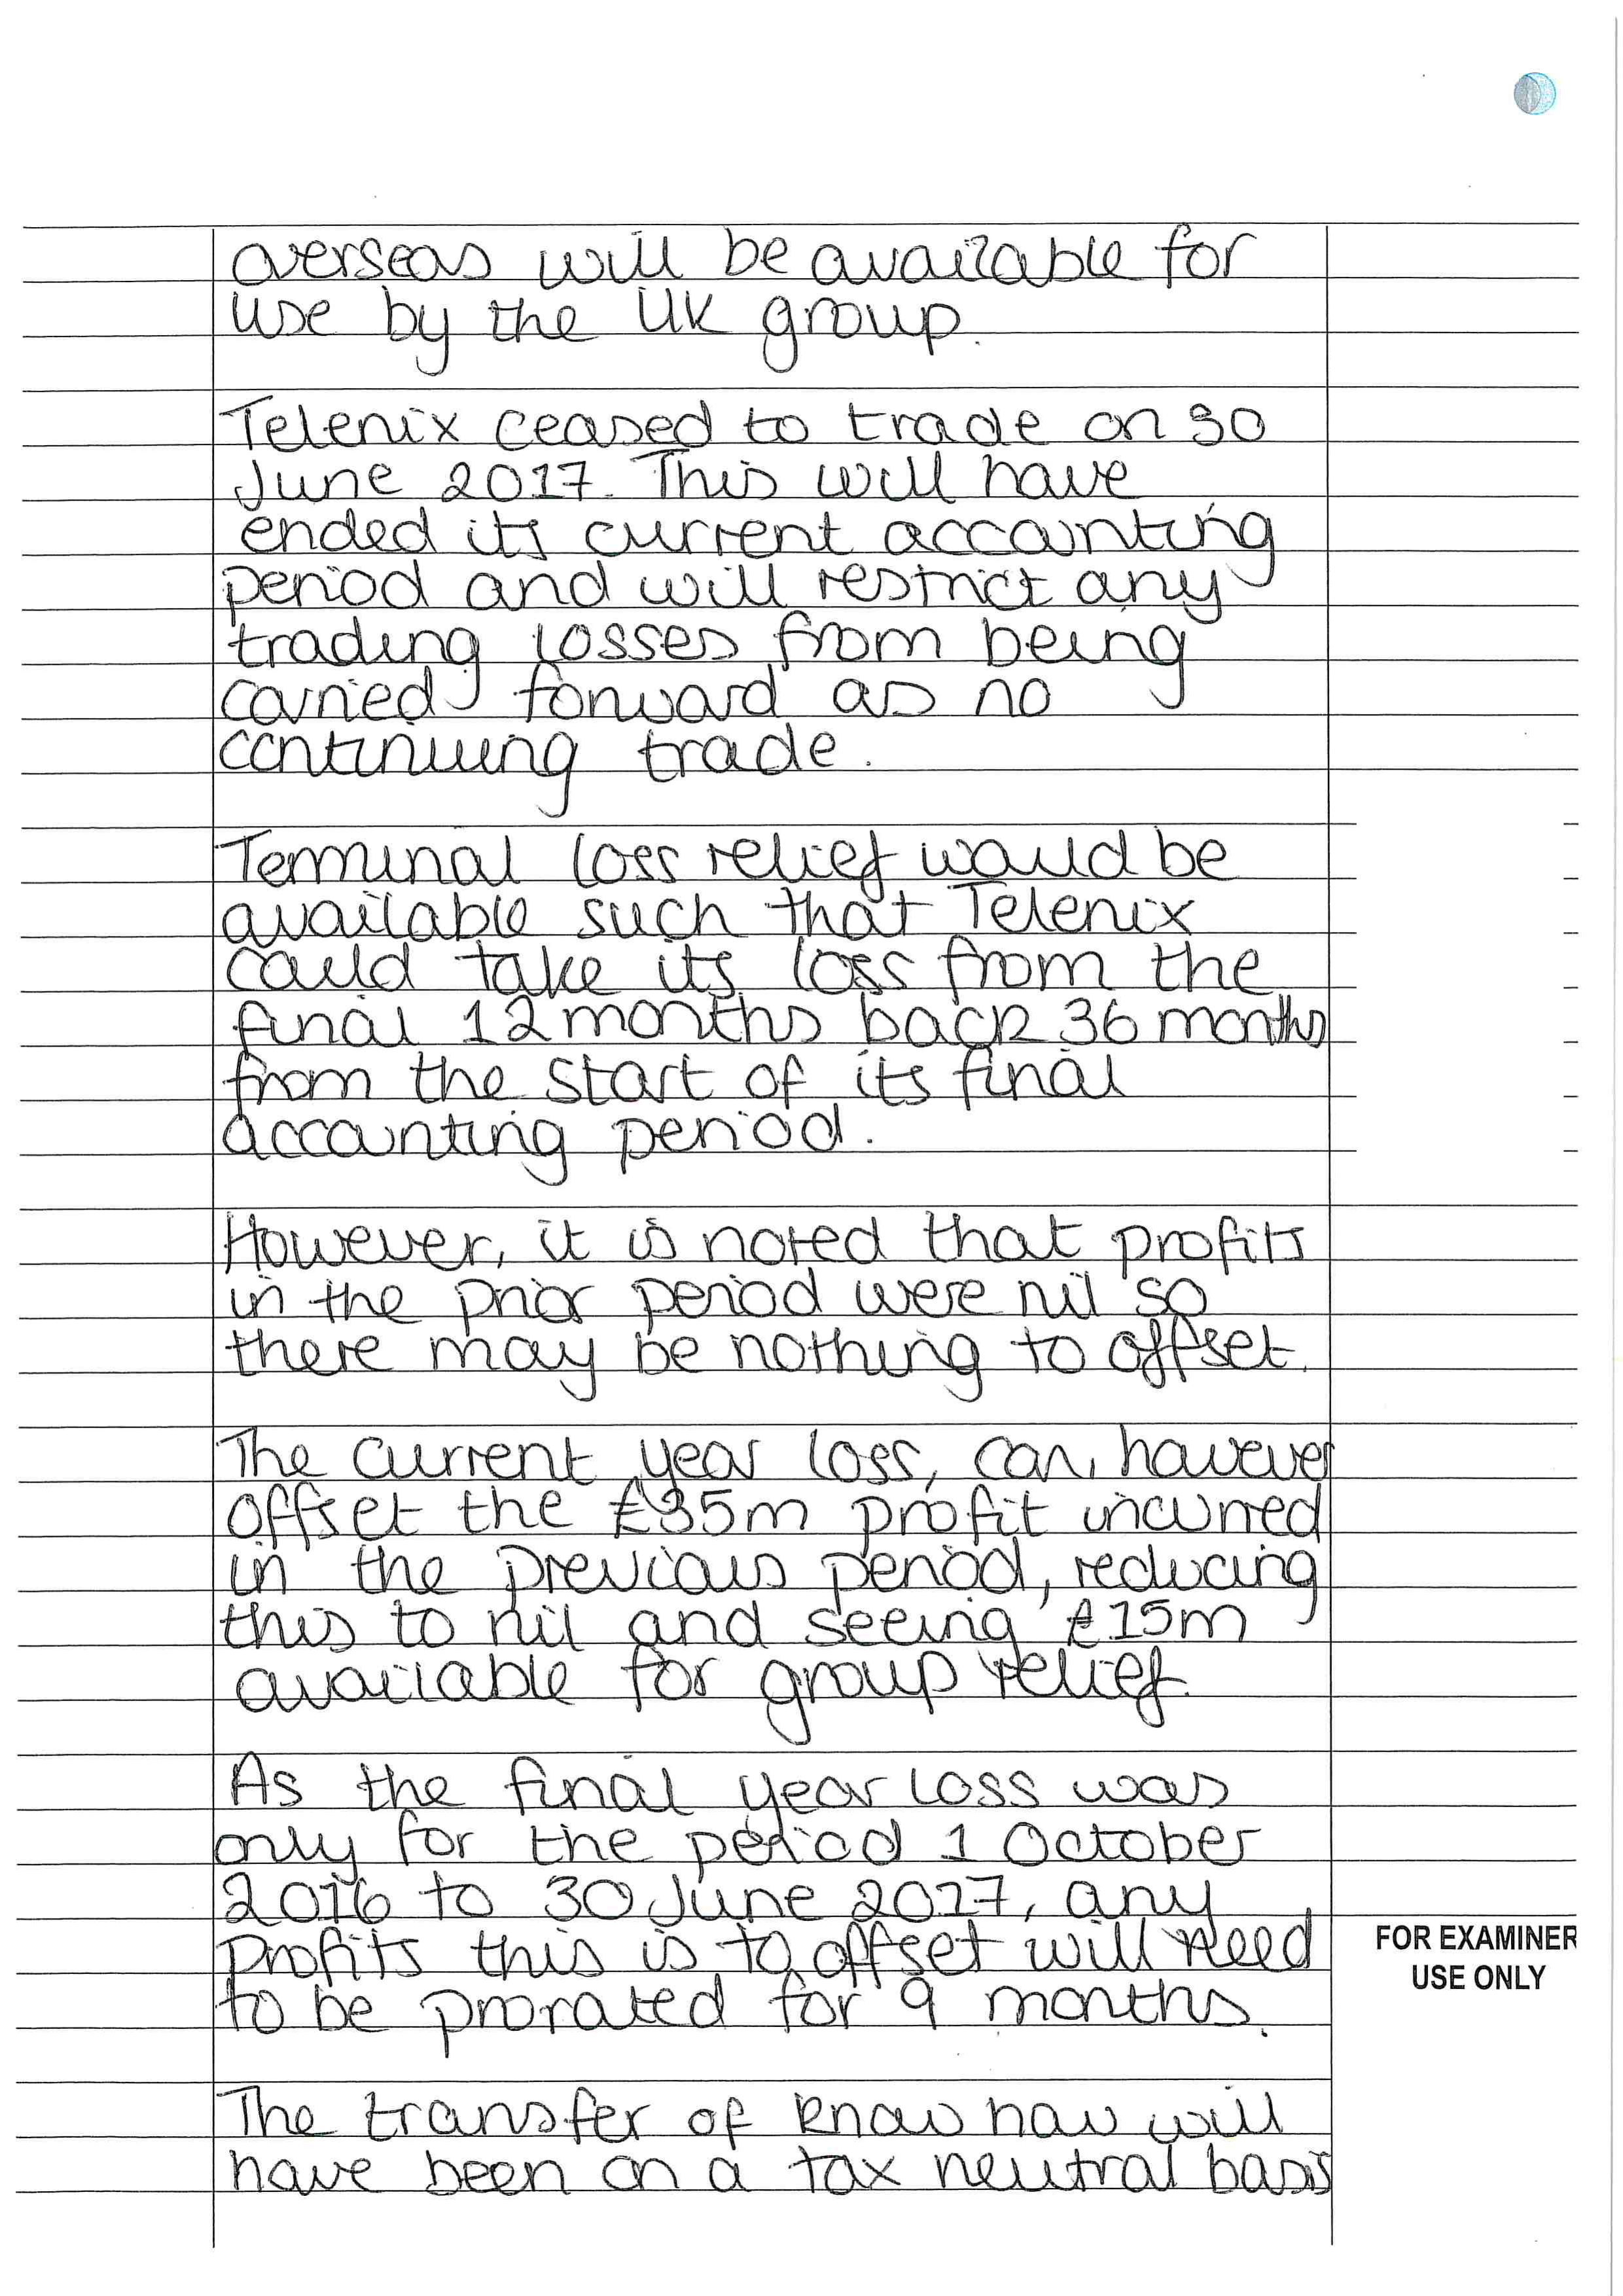 overseas will be available for
use by the UK group.
Telenix ceased to trade on 30
June 2017. This will have
ended its current accounting
period and will restrict any
trading losses from being
carried forward as no
continuing trade.
Terminal loss relief would be
available such that Telenix
could take its loss from the
final 12 months back 36 months
from the start of its final
accounting period.
However, it is noted that profits
in the prior period were nil so
there may be nothing to offset.
The current year loss, can, however
offset the £35m profit incurred
in the previous period, reducing
this to nil and seeing £15m
available for group relief.
As the final year loss was
only for the period 1 October
2016 to 30 June 2017, any
profits this is to offset will need
to be prorated for 9 months.
FOR EXAMINER
USE ONLY
The transfer of know how will
have been on a tax neutral basis